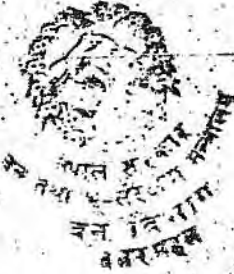 नेपाल सरकार
वन तथा भू-संरक्षण मन्त्रालय
वन विभाग
बबरमहल